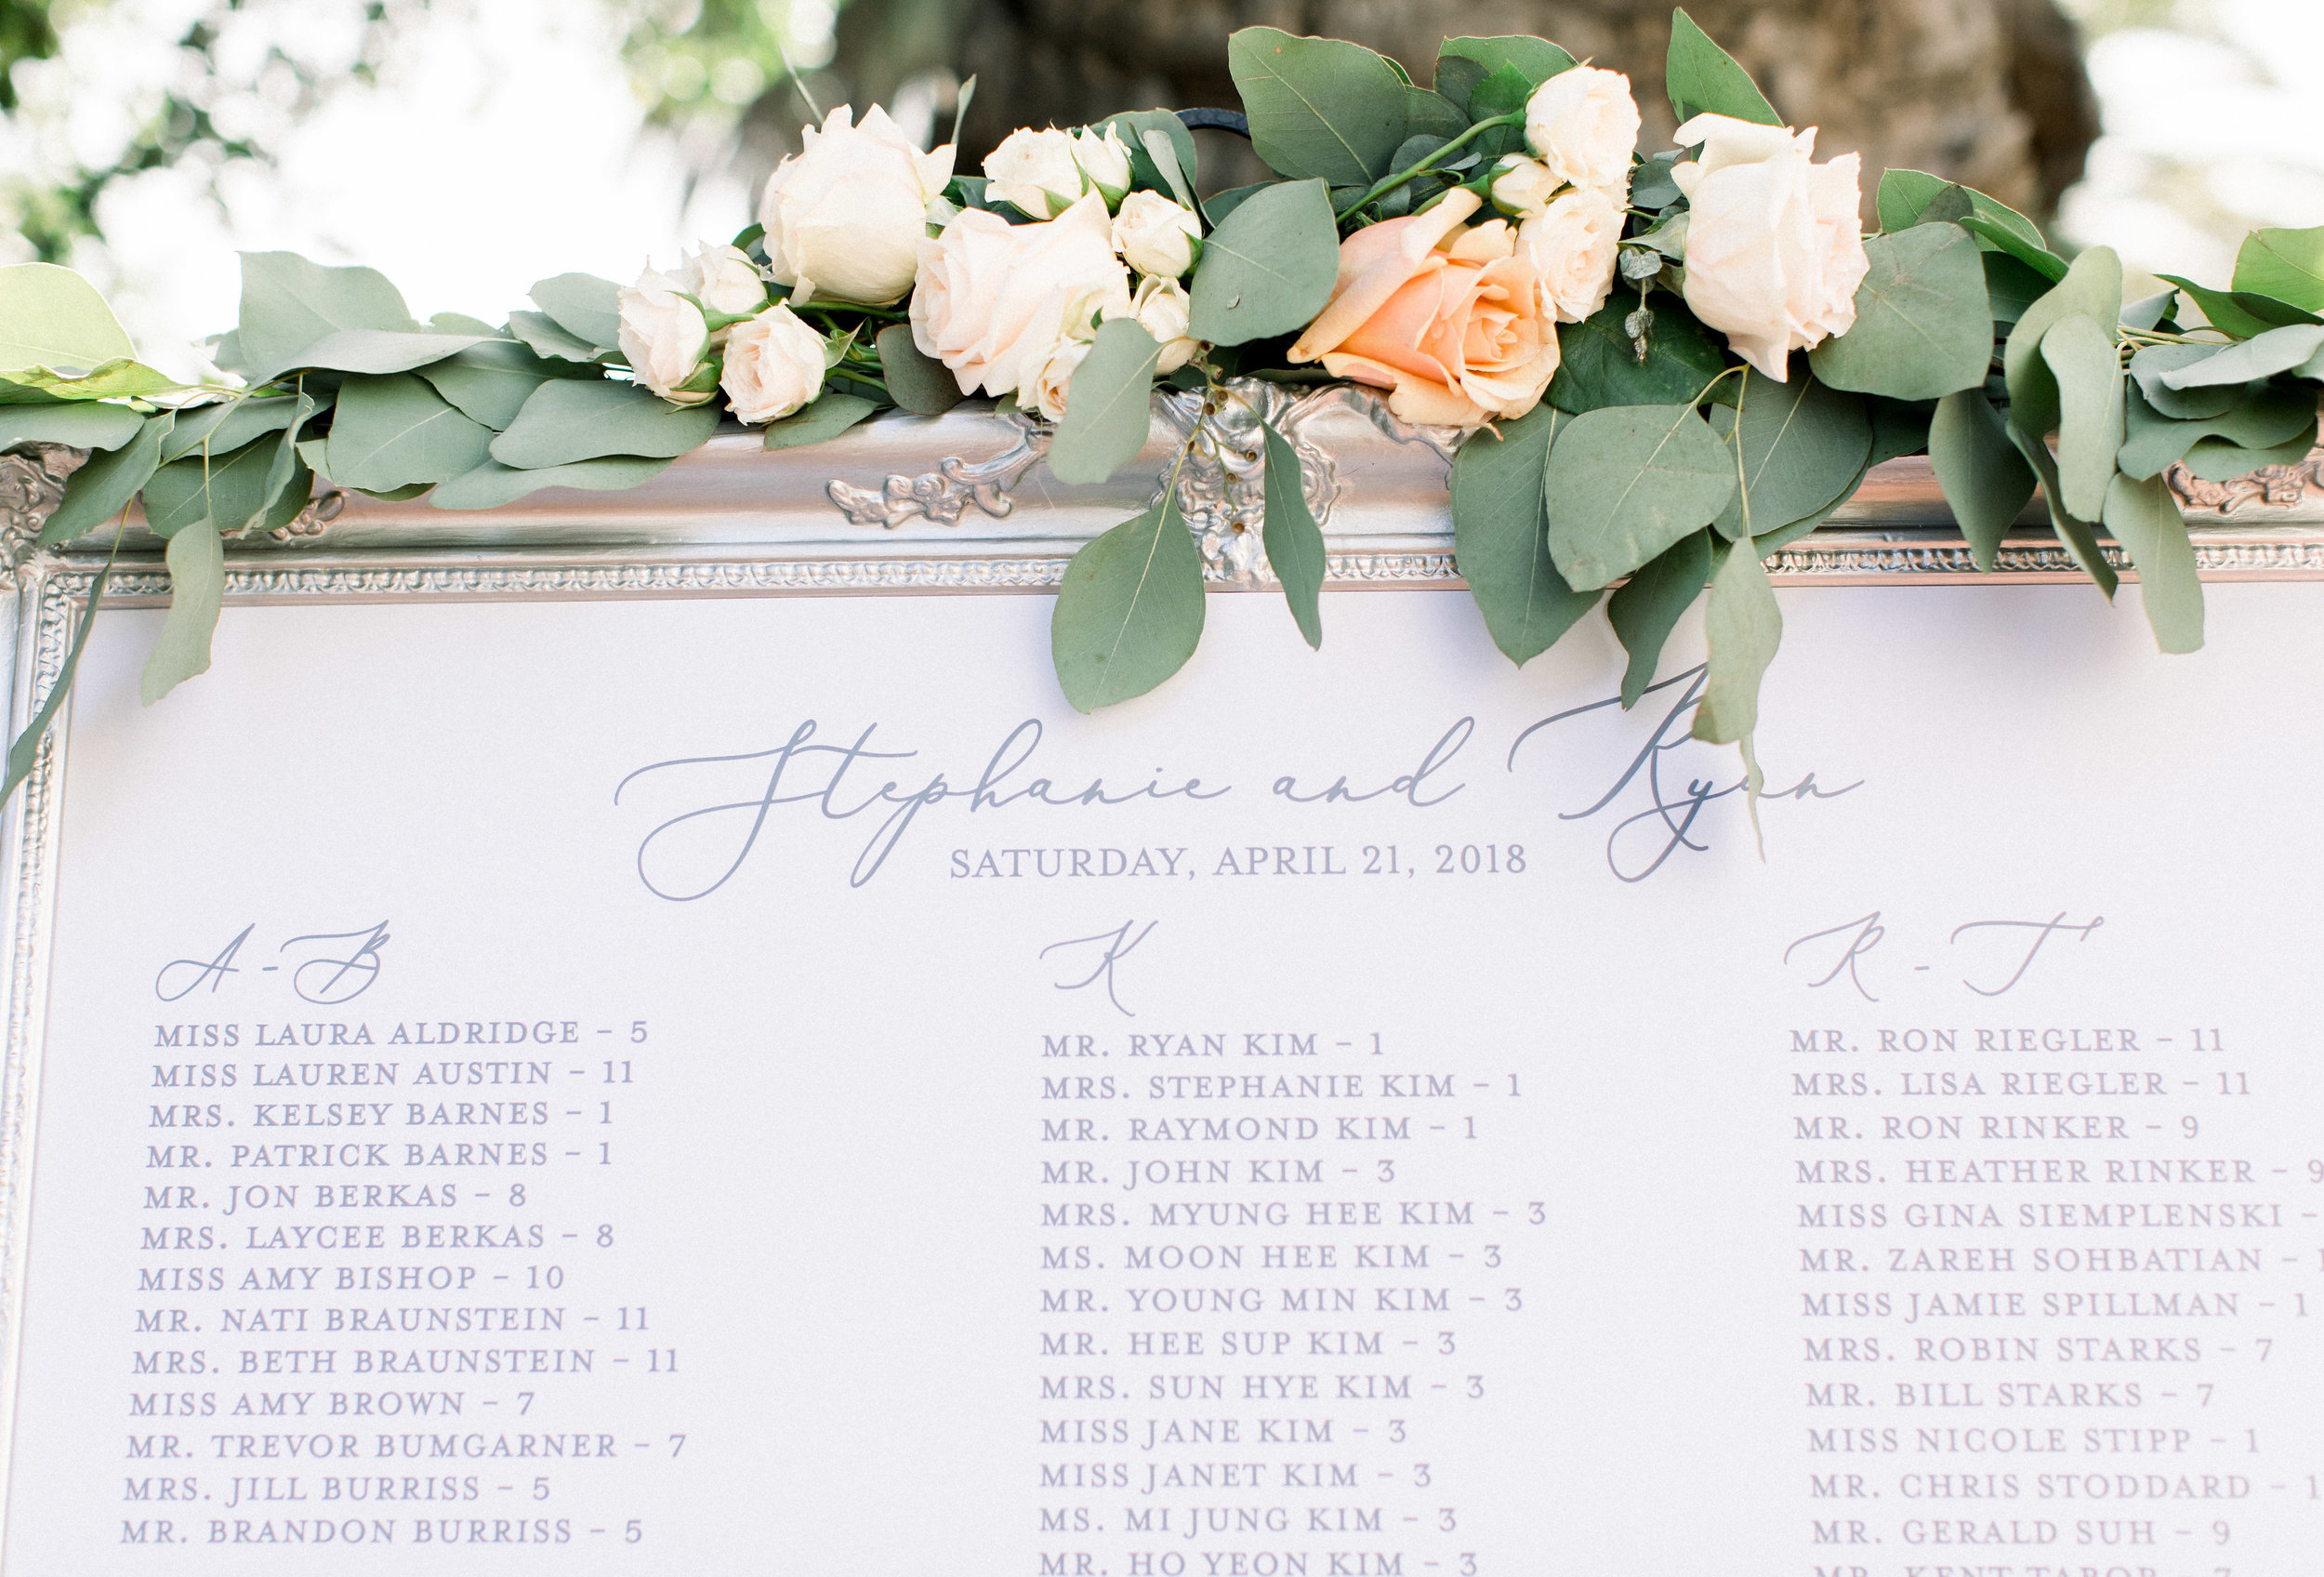 Stephanie and Ryan
SATURDAY, APRIL 21, 2018
A - B
MISS LAURA ALDRIDGE – 5
MISS LAUREN AUSTIN – 11
MRS. KELSEY BARNES – 1
MR. PATRICK BARNES – 1
MR. JON BERKAS – 8
MRS. LAYCEE BERKAS – 8
MISS AMY BISHOP – 10
MR. NATI BRAUNSTEIN – 11
MRS. BETH BRAUNSTEIN – 11
MISS AMY BROWN – 7
MR. TREVOR BUMGARNER – 7
MRS. JILL BURRISS – 5
MR. BRANDON BURRISS – 5
K
MR. RYAN KIM – 1
MRS. STEPHANIE KIM – 1
MR. RAYMOND KIM – 1
MR. JOHN KIM – 3
MRS. MYUNG HEE KIM – 3
MS. MOON HEE KIM – 3
MR. YOUNG MIN KIM – 3
MR. HEE SUP KIM – 3
MRS. SUN HYE KIM – 3
MISS JANE KIM – 3
MISS JANET KIM – 3
MS. MI JUNG KIM – 3
MR. HO YEON KIM – 3
R - T
MR. RON RIEGLER – 11
MRS. LISA RIEGLER – 11
MR. RON RINKER – 9
MRS. HEATHER RINKER – 9
MISS GINA SIEMPLENSKI –
MR. ZAREH SOHBATIAN –
MISS JAMIE SPILLMAN – 1
MRS. ROBIN STARKS – 7
MR. BILL STARKS – 7
MISS NICOLE STIPP – 1
MR. CHRIS STODDARD – 1
MR. GERALD SUH – 9
MR. KENT TABOR – 7